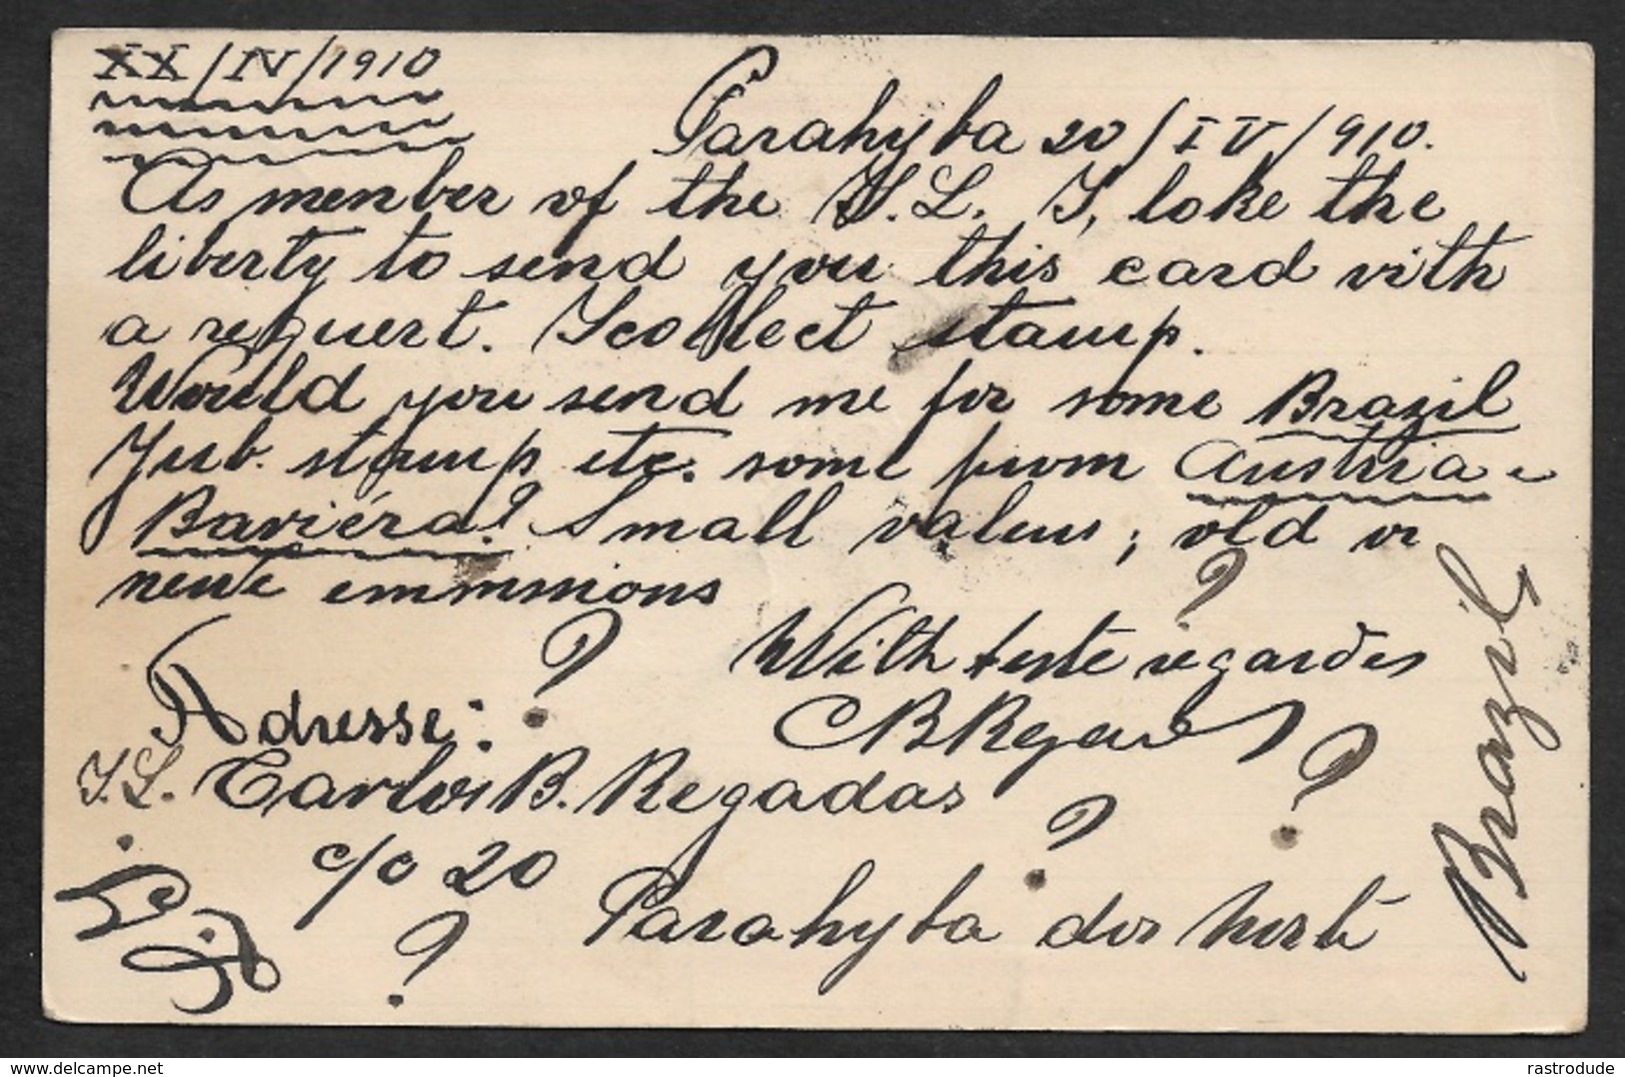 XX/IV/1910
Parahyba 20/IV/910.
As menber of the I.L. I, loke the
liberty to send you this card vith
a requert. I collect stamp.
Would you send me for some Brazil
Jub. stamp etc. some from Austria e
Baviéra? Small values; old or
newe emmnions
?
? With beste regardes
Adresse: CBRgadas
?
I.L. Carlos B. Regadas
?
c/o 20
Parahyba dor Norte
?
I.L.
Brazil
delcampe.net
rastrodude